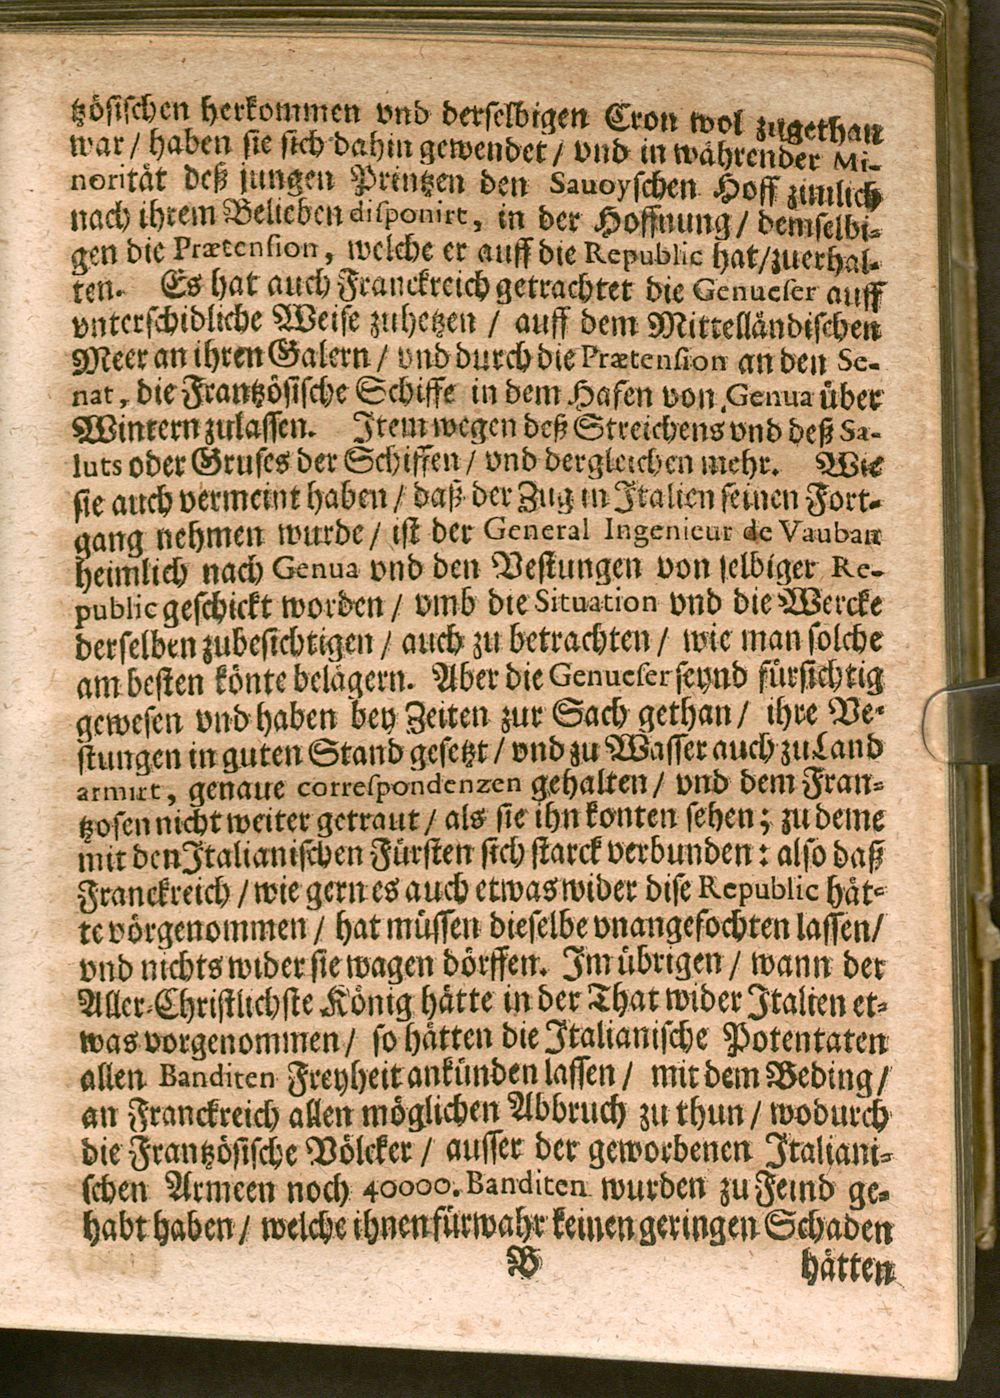 tzösischen herkommen vnd derselbigen Cron wol zugethan
war / haben sie sich dahin gewendet / vnd in währender Mi-
norität deß jungen Printzen den Savoyschen Hoff zimlich
nach ihrem Belieben disponirt, in der Hoffnung / demselbi-
gen die Prætension, welche er auff die Republic hat / zuerhal-
ten. Es hat auch Franckreich getrachtet die Genueser auff
vnterschidliche Weise zuhetzen / auff dem Mittelländischen
Meer an ihren Galern / vnd durch die Prætension an den Se-
nat, die Frantzösische Schiffe in dem Hafen von Genua über
Wintern zulassen. Item wegen deß Streichens vnd deß Sa-
luts oder Gruses der Schiffen / vnd dergleichen mehr. Wie
sie auch vermeint haben / daß der Zug in Italien seinen Fort-
gang nehmen wurde / ist der General Ingenieur de Vauban
heimlich nach Genua vnd den Vestungen von selbiger Re-
public geschickt worden / vmb die Situation vnd die Wercke
derselben zubesichtigen / auch zu betrachten / wie man solche
am besten könte belägern. Aber die Genueser seynd fürsichtig
gewesen vnd haben bey Zeiten zur Sach gethan / ihre Ve-
stungen in guten Stand gesetzt / vnd zu Wasser auch zu Land
armirt, genaue correspondenzen gehalten / vnd dem Fran-
tzosen nicht weiter getraut / als sie ihn konten sehen; zu deme
mit den Italianischen Fürsten sich starck verbunden: also daß
Franckreich / wie gern es auch etwas wider dise Republic hät-
te vörgenommen / hat müssen dieselbe vnangefochten lassen /
vnd nichts wider sie wagen dörffen. Im übrigen / wann der
Aller-Christlichste König hätte in der That wider Italien et-
was vorgenommen / so hätten die Italianische Potentaten
allen Banditen Freyheit ankünden lassen / mit dem Beding /
an Franckreich allen möglichen Abbruch zu thun / wodurch
die Frantzösische Völcker / ausser der geworbenen Italiani-
schen Armeen noch 40000. Banditen wurden zu Feind ge-
habt haben / welche ihnen fürwahr keinen geringen Schaden
B hätten